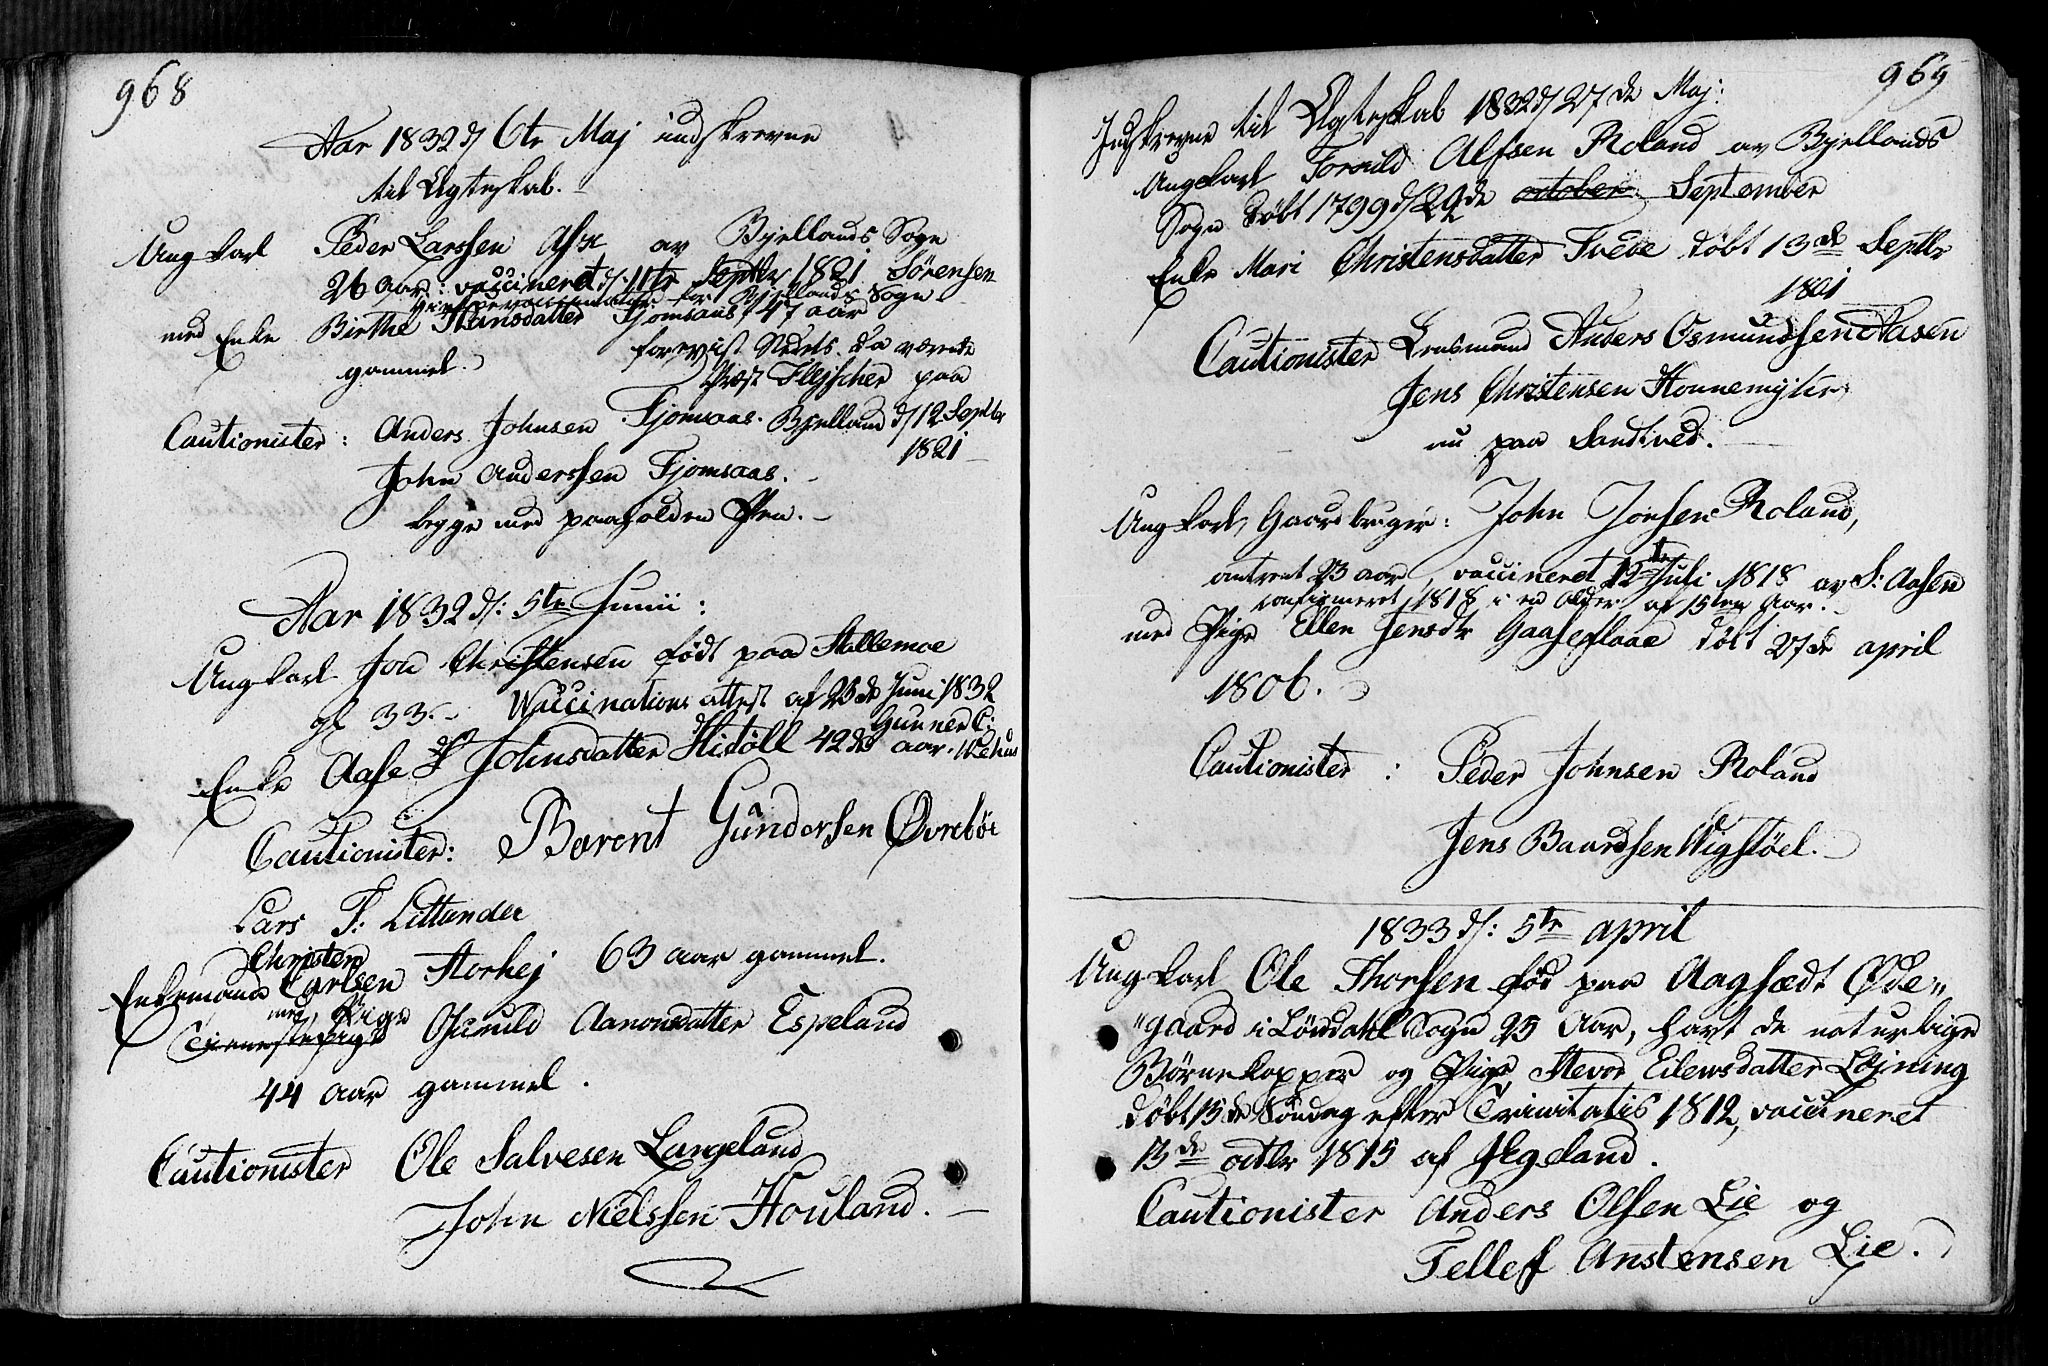 968
Aar 1832 d/ 6te Maj indskrevne
til Ægteskab.
Ungkarl Peder Larssen Ask av Bjellands Sogn
26 aar: vaccineret d: 11te Septbr 1821 Sörensen
for Bjellands Sogn
med Enke Birthe Hansdatter Fjomsaas 47 aar
gammel.
forevist Stedets da værende
Præst Flejscher paa
Bjelland d/ 12 Septbr
1821
Cautionister: Anders Johnsen Fjomsaas.
John Anderssen Fjomsaas.
begge med paaholden Pen.
Aar 1832 d/: 5te Junii:
Ungkarl Jon Christensen födt paa Stallemoe
gl 33. Vaccinations attest af 23de Juni 1832
Gunner C:
Wehus
Enke Aase Johnsdatter Skisöll 42de aar.
Cautionister: Berent Gundersen Øvreböe
Lars T: Littander
Christen
Enkemand Carlsen Storhej 63 aar gammel.
med Pige
Tienestepige Gunuld Aanonsdatter Espeland
44 aar gammel.
Cautionister Ole Salvesen Langeland
John Nielssen Houland.
969
Indskrevne til Ægteskab 1832 d/ 27de Maj:
Ungkarl Toruld Alfsen Roland av Bjellands
Sogn döbt 1799 d/ 29de october September
Enke Mari Christensdatter Tvede döbt 13de Septbr
1801
Cautionister Lensmand Anders Osmundsen Aasen
Jens Christensen Honnemyhr
nu paa Sandtved.
Ungkarl, Gaardbruger: John Jonsen Roland,
omtrent 23 aar, vaccineret 12te Juli 1818 av S: Aasen
confirmeret 1818 i en alder af 15ten Aar.
med Pige Ellen Jensdtr Gaaseflaae döbt 27de april
1806.
Cautionister: Peder Johnsen Roland
Jens Baardsen Wigstöel.
1833 d/: 5te april
Ungkarl Ole Thorsen föd paa Aagsædt Øde-
gaard i Löudahl Sogn 25 Aar, havt de naturlige
Börnekopper og Pige Stevor Eilewsdatter Löjning
döbt 15de Söndag efter Trinitatis 1812, vaccineret
13de octbr 1815 af Hægeland.
Cautionister Anders Olsen Lie og
Tellef Anstensen Lie.